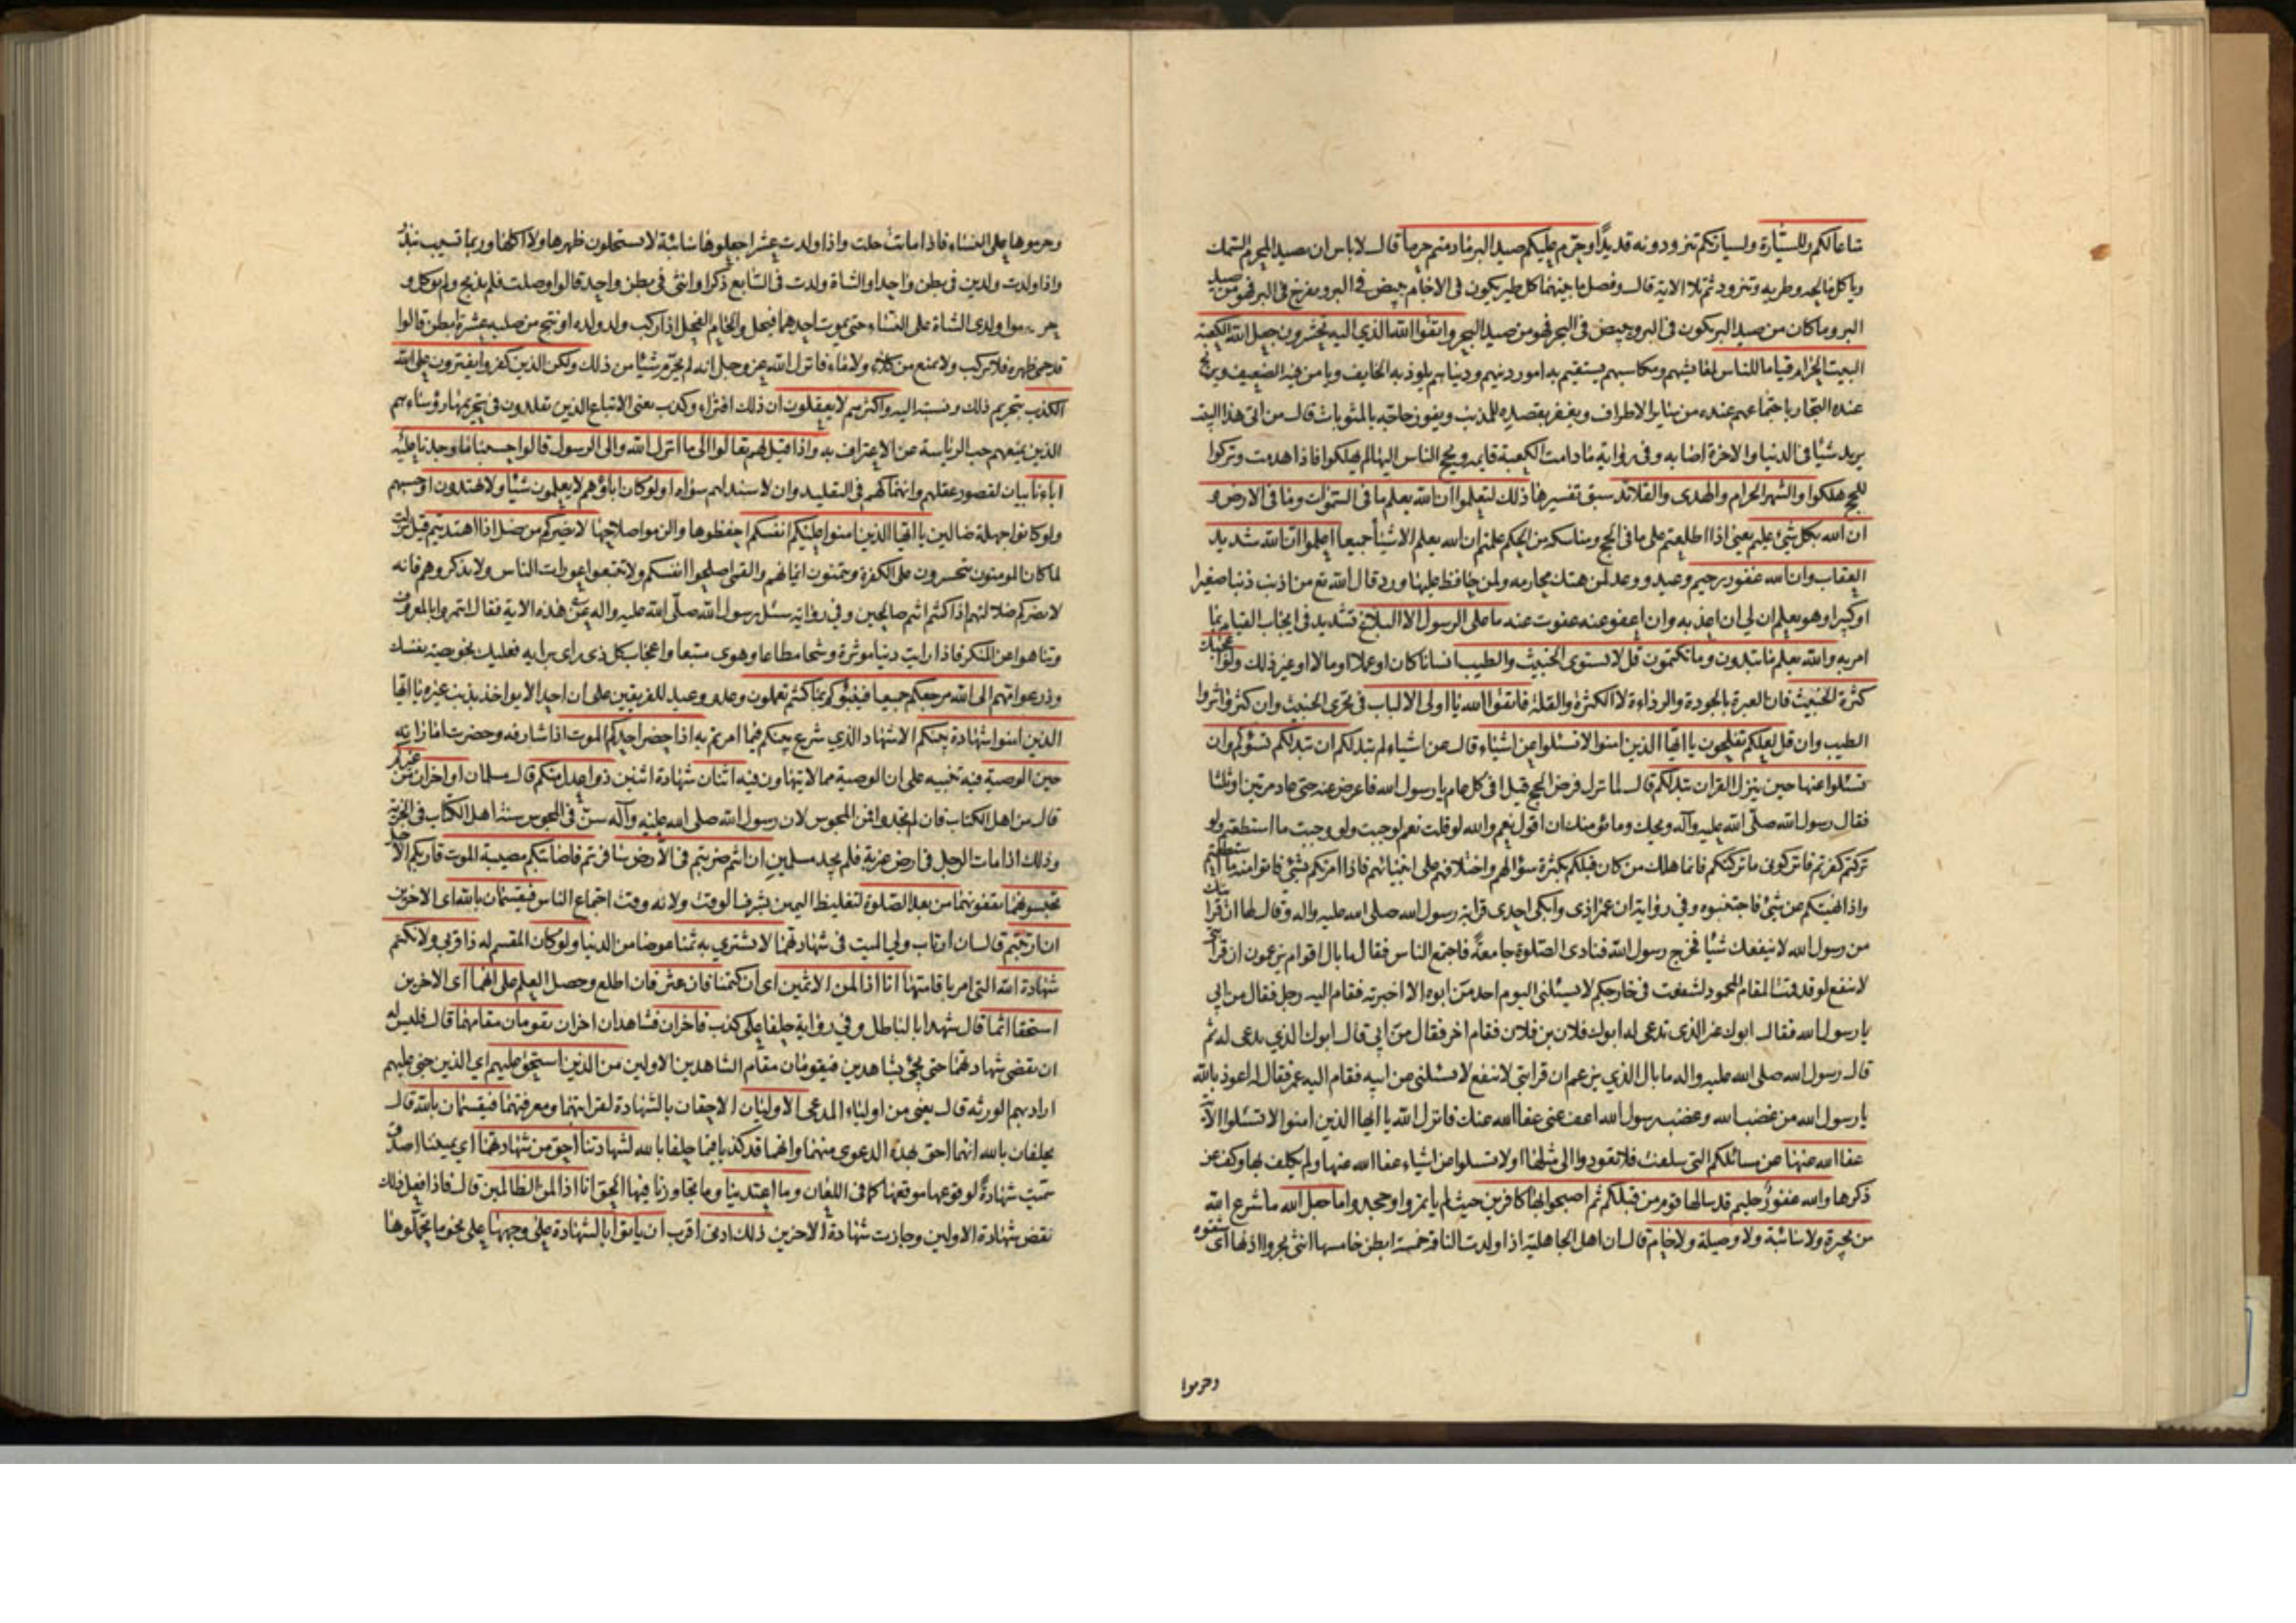 متاعا لكم وللسيارة ولسيارتكم تتزودونه قديدًا وحرم عليكم صيد البر ما دمتم حرما قال لا باس ان يصيد المحرم السمك
وياكل مالحه وطريه ويتزود ثم تلا الاية قال وفصل ما بينهما كل طير يكون في الاجام يبيض في البر ويفرخ في البر فهو من صيد
البر وما كان من صيد البر يكون في البر ويبيض في البحر فهو من صيد البحر واتقوا الله الذي اليه تحشرون جعل الله الكعبة
البيت الحرام قياما للناس لمعايشهم ومكاسبهم يستقيم به امور دينهم ودنياهم يلوذ به الخايف ويامن فيه الضعيف ويربح
عنده التجار باجتماعهم عنده من ساير الاطراف ويغفر بقصده للمذنب ويفوز حاجه بالمثوبات قال من اتى هذا البيت
يريد شيئا في الدنيا والاخرة اصابه وفي رواية ما دامت الكعبة قايمه ويحج الناس اليها لم يهلكوا فاذا هدمت وتركوا
الحج هلكوا والشهر الحرام والهدى والقلائد سبق تفسيرها ذلك لتعلموا ان الله يعلم ما في السموات وما في الارض و
ان الله بكل شيء عليم يعني اذا اطلعتم على ما في الحج ومناسكه من الحكم علمتم ان الله يعلم الاشياء جميعا اعلموا ان الله شديد
العقاب وان الله غفور رحيم وعيد ووعد لمن هتك محارمه ولمن حافظ عليها ورد قال الله تع من اذنب ذنبا صغيرا
او كبيرا وهو يعلم ان لي ان اعذبه وان اعفو عنه عفوت عنه ما على الرسول الا البلاغ تشديد في ايجاب القيام بما
امر به والله يعلم ما تبدون وما تكتمون قل لا يستوي الخبيث والطيب انسانا كان او عملا او مالا او غير ذلك ولو اعجبك
كثرة الخبيث فان العبرة بالجودة والرداءة لا الكثرة والقلة فاتقوا الله يا اولى الالباب في تحرى الخبيث وان كثر واثروا
الطيب وان قل لعلكم تفلحون يا ايها الذين امنوا لا تسئلوا عن اشياء قال عن اشياء لم تبد لكم ان تبد لكم تسؤكم وان
تسئلوا عنها حين ينزل القران تبد لكم قال لما نزل فرض الحج قيل افي كل عام يا رسول الله فاعرض عنه حتى عاد مرتين او ثلثا
فقال رسول الله صلى الله عليه وآله ويحك وما يؤمنك ان اقول نعم والله لو قلت نعم لوجبت ولو وجبت ما استطعتم ولو
تركتم كفرتم فاتركوني ما تركتكم فانما هلك من كان قبلكم بكثرة سؤالهم واختلافهم على انبيائهم فاذا امرتكم بشئ فاتوا منه ما استطعتم
واذا نهيتكم عن شئ فاجتنبوه وفي رواية ان عمر اذى وابكى احدى قرابة رسول الله صلى الله عليه واله وقال لها ان قرابتك
من رسول الله لا ينفعك شيئا فخرج رسول الله فنادى الصلوة جامعة فاجتمع الناس فقال ما بال اقوام يزعمون ان قرابتي
لا تنفع لو قد قمت المقام المحمود لشفعت في خارجكم لا يسئلني اليوم احد من ابوه الا اخبرته فقام اليه رجل فقال من ابي
يا رسول الله فقال ابوك غير الذى تدعى له ابوك فلان بن فلان فقام اخر فقال من ابي قال ابوك الذي تدعى له ثم
قال رسول الله صلى الله عليه واله ما بال الذي يزعم ان قرابتي لا تنفع لا يسئلني من ابيه فقام اليه عمر فقال له اعوذ بالله
يا رسول الله من غضب الله وغضب رسول الله اعف عني عفا الله عنك فانزل الله يا ايها الذين امنوا لا تسئلوا الاية
عفا الله عنها عن مسائلكم التي سلفت فلا تعودوا الى مثلها او لا تسئلوا عن اشياء عفا الله عنها ولم يكلف بها وكف عن
ذكرها والله غفور حليم قد سالها قوم من قبلكم ثم اصبحوا بها كافرين حيث لم ياتمروا وجحدوا ما جعل الله ما شرع الله
من بحيرة ولا سائبة ولا وصيلة ولا حام قال ان اهل الجاهلية اذا ولدت الناقة خمسة ابطن خامسها انثى بحروا اذنها اى شقوه
وحرموا
وحرموها على النساء فاذا ماتت حلت واذا ولدت عشرا جعلوها سائبة لا يستحلون ظهرها ولا اكلها وربما تسيب بنذر
واذا ولدت ولدين في بطن واحد او الشاة ولدت في السابع ذكرا وانثى في بطن واحد قالوا وصلت فلم يذبح ولم يوكل و
حرموا ولدى الشاة على النساء حتى يموت احدهما فيحل والحام الفحل اذا ركب ولد ولده او نتج من صلبه عشرة ابطن قالوا
قد حمى ظهره فلا يركب ولا يمنع من كلاء ولا ماء فانزل الله عز وجل انه لم يحرم شيئا من ذلك ولكن الذين كفروا يفترون على الله
الكذب بتحريم ذلك ونسبته اليه واكثرهم لا يعقلون ان ذلك افتراء وكذب يعني الاتباع الذين يقلدون في تحريمها رؤساءهم
الذين يمنعهم حب الرياسة عن الاعتراف به واذا قيل لهم تعالوا الى ما انزل الله والى الرسول قالوا حسبنا ما وجدنا عليه
اباءنا بيان لقصور عقلهم وانهماكهم في التقليد وان لا سند لهم سواه اولو كان اباؤهم لا يعلمون شيئا ولا يهتدون اوحسبهم
ولو كانوا جهلة ضالين يا ايها الذين امنوا عليكم انفسكم احفظوها والزموا صلاحها لا يضركم من ضل اذا اهتديتم قيل نزلت
لما كان المومنون يتحسرون على الكفرة ويتمنون ايمانهم والقمي اصلحوا انفسكم ولا تتبعوا عورات الناس ولا تذكروهم فانه
لا يضركم ضلالتهم اذا كنتم انتم صالحين وفي رواية سئل رسول الله صلى الله عليه واله عن هذه الاية فقال ائتمروا بالمعروف
وتناهوا عن المنكر فاذا رايت دنيا موثرة وشحا مطاعا وهوى متبعا واعجاب كل ذى راى برايه فعليك بخويصة نفسك
وذر عوامهم الى الله مرجعكم جميعا فينبؤكم بما كنتم تعملون وعد ووعيد للفريقين على ان احدا لا يواخذ بذنب غيره يا ايها
الذين امنوا شهادة بينكم الاشهاد الذي شرع بينكم فيما امرتم به اذا حضر احدكم الموت اذا شارفه وحضرت اماراته
حين الوصية فيه تنبيه على ان الوصية مما لا يتهاون فيه اثنان شهادة اثنين ذوا عدل منكم قال مسلمان او اخران من غيركم
قال من اهل الكتاب فان لم تجدوا فمن المجوس لان رسول الله صلى الله عليه وآله سن في المجوس سنة اهل الكتاب في الجزية
وذلك اذا مات الرجل في ارض غربة فلم يجد مسلمين ان انتم ضربتم في الارض سافرتم فاصابتكم مصيبة الموت قاربكم الاجل
تحبسونهما تقفونهما من بعد الصلوة لتغليظ اليمين بشرف الوقت ولانه وقت اجتماع الناس فيقسمان بالله اى الاخرين
ان ارتبتم قال ان ارتاب ولي الميت في شهادتهما لا نشتري به ثمنا عوضا من الدنيا ولو كان المقسم له ذا قربى ولا نكتم
شهادة الله التى امر باقامتها انا اذا لمن الاثمين اى ان كتمنا فان عثر فان اطلع وحصل العلم على انهما اى الاخرين
استحقا اثما قال شهدا بالباطل وفي رواية حلفا على كذب فاخران فشاهدان اخران يقومان مقامهما قال فليس له
ان ينقض شهادتهما حتى يجئ بشاهدين فيقومان مقام الشاهدين الاولين من الذين استحق عليهم اي الذين جنى عليهم
اراد بهم الورثة قال يعني من اولياء المدعى الاوليان الاحقان بالشهادة لقرابتهما ومعرفتهما فيقسمان بالله قال
يحلفان بالله انهما احق بهذه الدعوى منهما وانهما قد كذبا فيما حلفا بالله لشهادتنا احق من شهادتهما اي يميننا اصدق
سميت شهادة لوقوعها موقعها كما في اللعان وما اعتدينا وما تجاوزنا فيها الحق انا اذا لمن الظالمين قال فاذا فعل ذلك
نقض شهادة الاولين وجازت شهادة الاخرين ذلك ادنى اقرب ان ياتوا بالشهادة على وجهها على نحو ما تحملوها